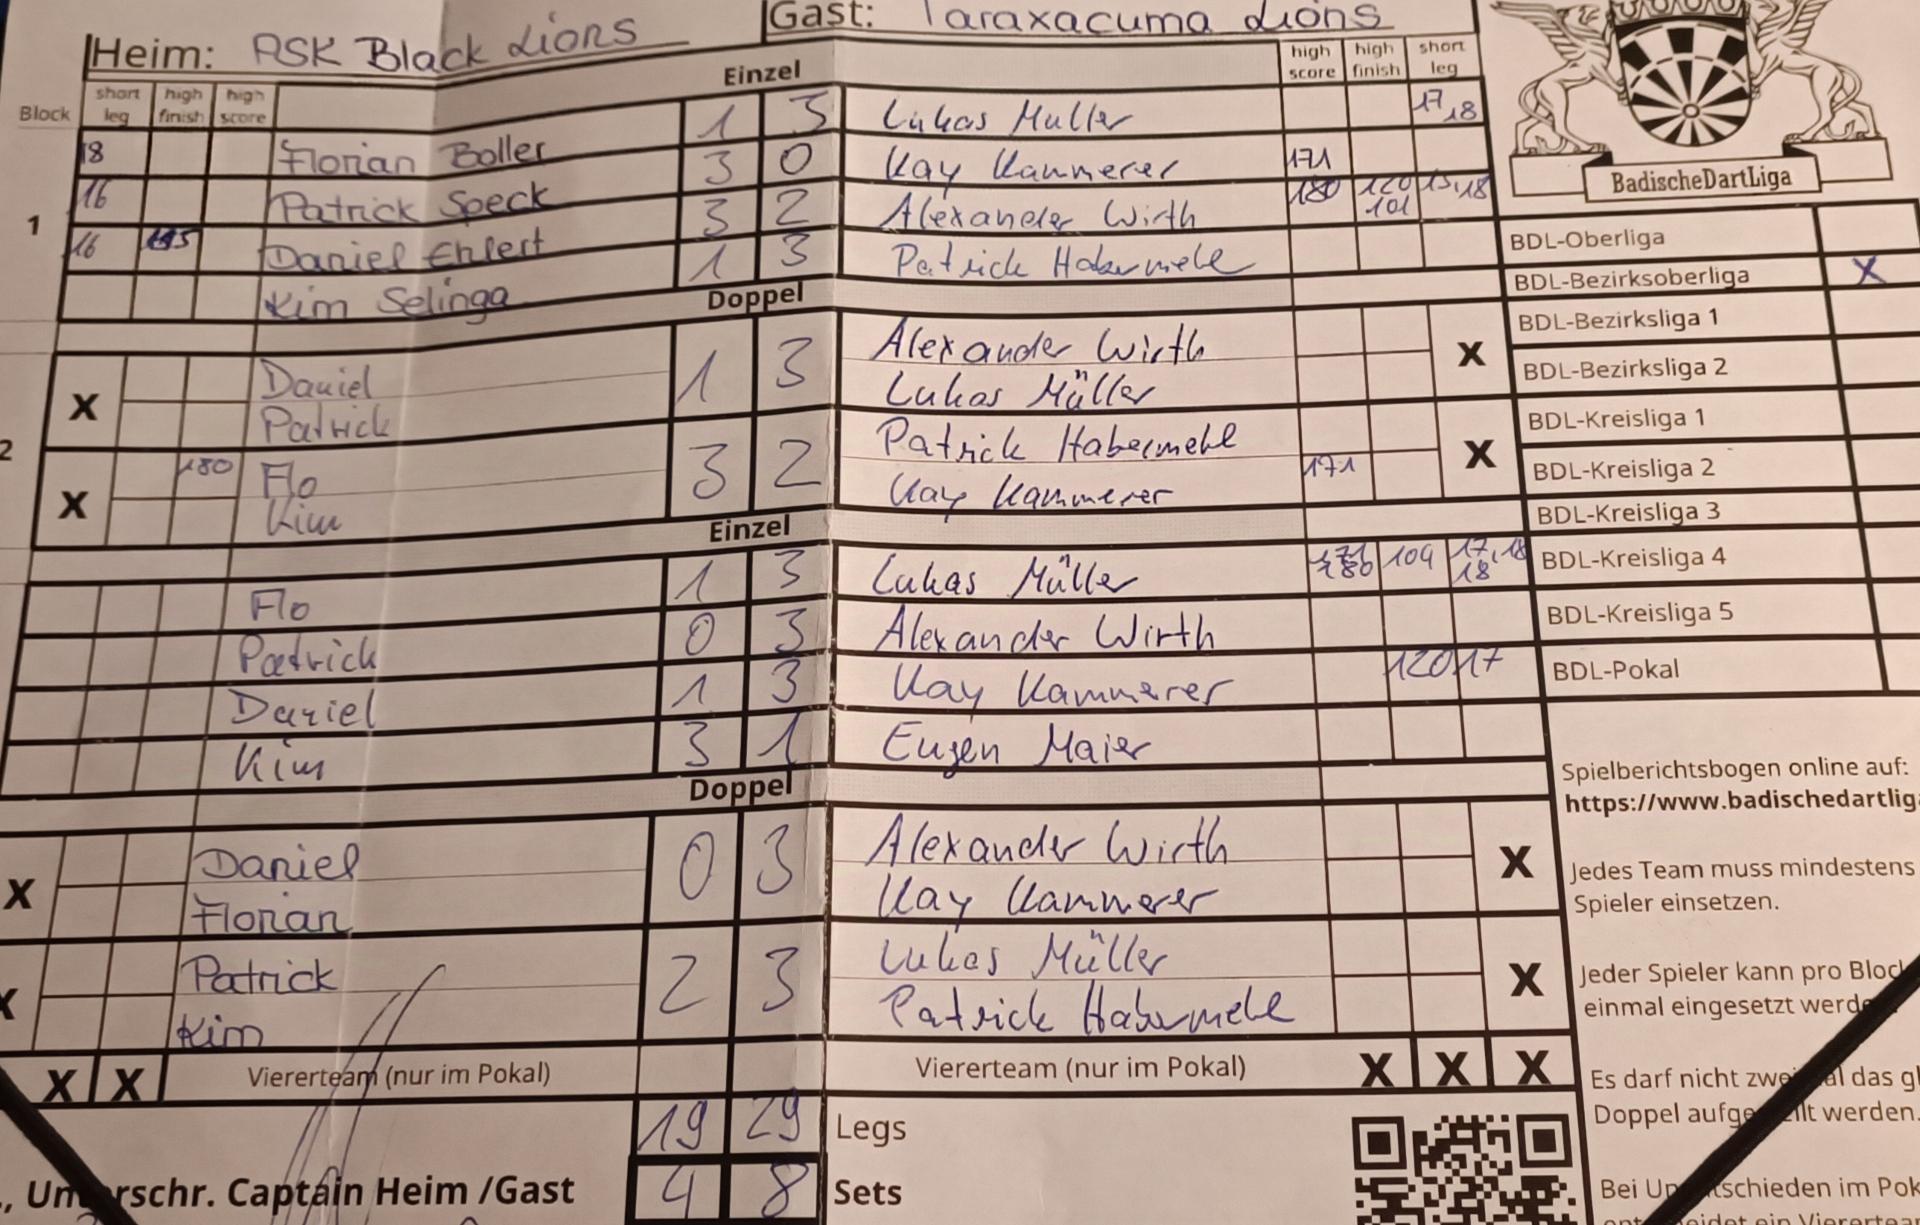 Heim: ASK Black Lions Gast: Taraxacuma Lions
Block short leg high finish high score Einzel high score high finish short leg
1
18 Florian Boller 1 3 Lukas Muller 17,18
16 Patrick Speck 3 0 Kay Kammerer 171
16 Daniel Ehlert 3 2 Alexander Wirth 180 120 101 15,18
Kim Selinga 1 3 Patrick Habermehl
Doppel
2
X Daniel Patrick 1 3 Alexander Wirth Lukas Müller X
X 180 Flo Kim 3 2 Patrick Habermehl Kay Kammerer 171 X
Einzel
Flo 1 3 Lukas Müller 171 180 104 17,18 18
Patrick 0 3 Alexander Wirth
Daniel 1 3 Kay Kammerer 120 17
Kim 3 1 Eugen Maier
Doppel
X Daniel Florian 0 3 Alexander Wirth Kay Kammerer X
X Patrick Kim 2 3 Lukas Müller Patrick Habermehl X
X X Viererteam (nur im Pokal) Viererteam (nur im Pokal) X X X
19 29 Legs
Unterschr. Captain Heim /Gast 4 8 Sets
BadischeDartLiga
BDL-Oberliga
BDL-Bezirksoberliga X
BDL-Bezirksliga 1
BDL-Bezirksliga 2
BDL-Kreisliga 1
BDL-Kreisliga 2
BDL-Kreisliga 3
BDL-Kreisliga 4
BDL-Kreisliga 5
BDL-Pokal
Spielberichtsbogen online auf:
https://www.badischedartlig
Jedes Team muss mindestens
Spieler einsetzen.
Jeder Spieler kann pro Block
einmal eingesetzt werde
Es darf nicht zweimal das gl
Doppel aufgestellt werden.
Bei Unentschieden im Pok